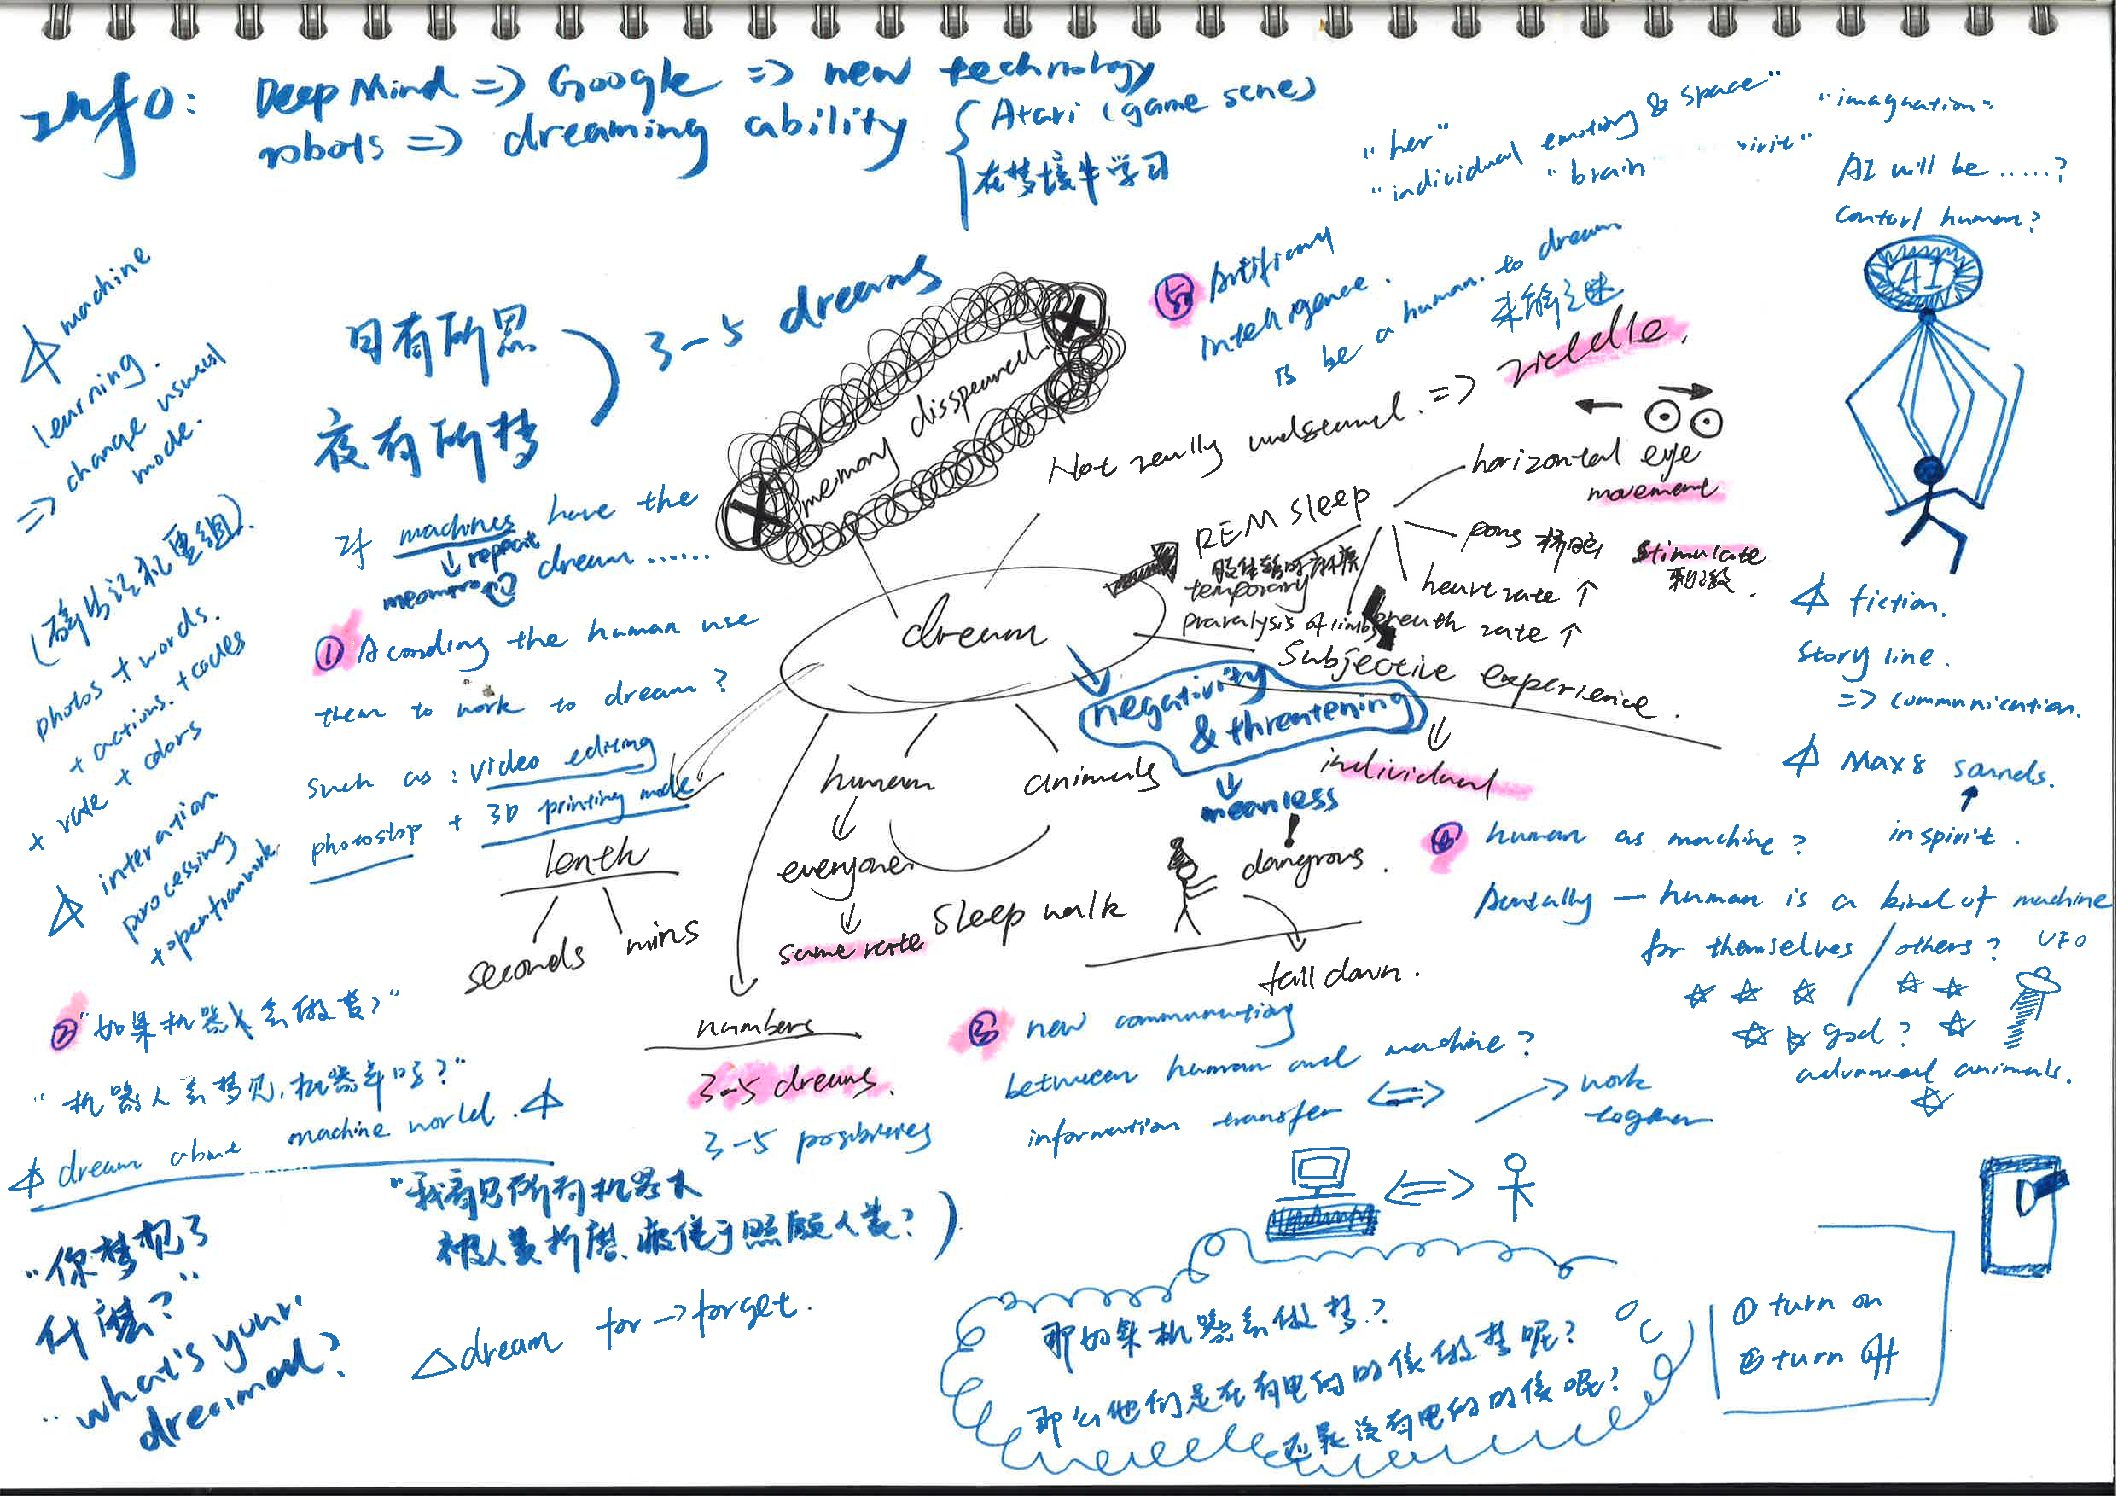 Info: DeepMind => Google => new technology
robots => dreaming ability { Atari (game sene)
在梦境中学习
"her"
"individual emotiong & space"
"brain
"imagnation"
AI will be .....?
contorl human?
AI
machine
learning.
=> change usueal
mode.
日有所思
夜有所梦
3-5 dreams
memory disspeared.
⑤ Artificial
Intelligence.
to be a human. to dream
未解之迷
Not really undseand. => riddle.
If machines have the
repeat
dream ......
REM sleep
temporary
paralysis of limbs
horizontal eye
movement
pons 桥脑 stimulate
刺激
heart rate ↑
breath rate ↑
Subjective experience.
individual
dream
negativity
& threatening
meanless
dangrous.
fall down.
① Acording the human use
them to work to dream?
such as: video editing
photoshop + 3D printing mode
photos + words.
+ actions. + codes
+ rate + colors
interation
porocessing
lenth
seconds
mins
human
everyone
same rate
animals
sleep walk
numbers
3-5 dreams.
3-5 posibilities
fiction.
story line.
=> communication.
Max8 sounds.
inspirit.
④ human as machine?
Acutally - human is a kind of machine
for themselves / others?
UFO
god?
advanced animals.
② "如果机器人会做梦?"
"机器人会梦见机器羊吗?"
dream about machine world.
被人类折磨、疲倦于照顾人类?)
"你梦见了
什麼?"
"what's your
dreamed?
dream for → forget.
③ new communicating
between human and machine?
information transfer <=>
work
together
那如果机器会做梦?
那么他们是在有电的时候做梦呢?
还是没有电的时候呢?
① turn on
② turn off